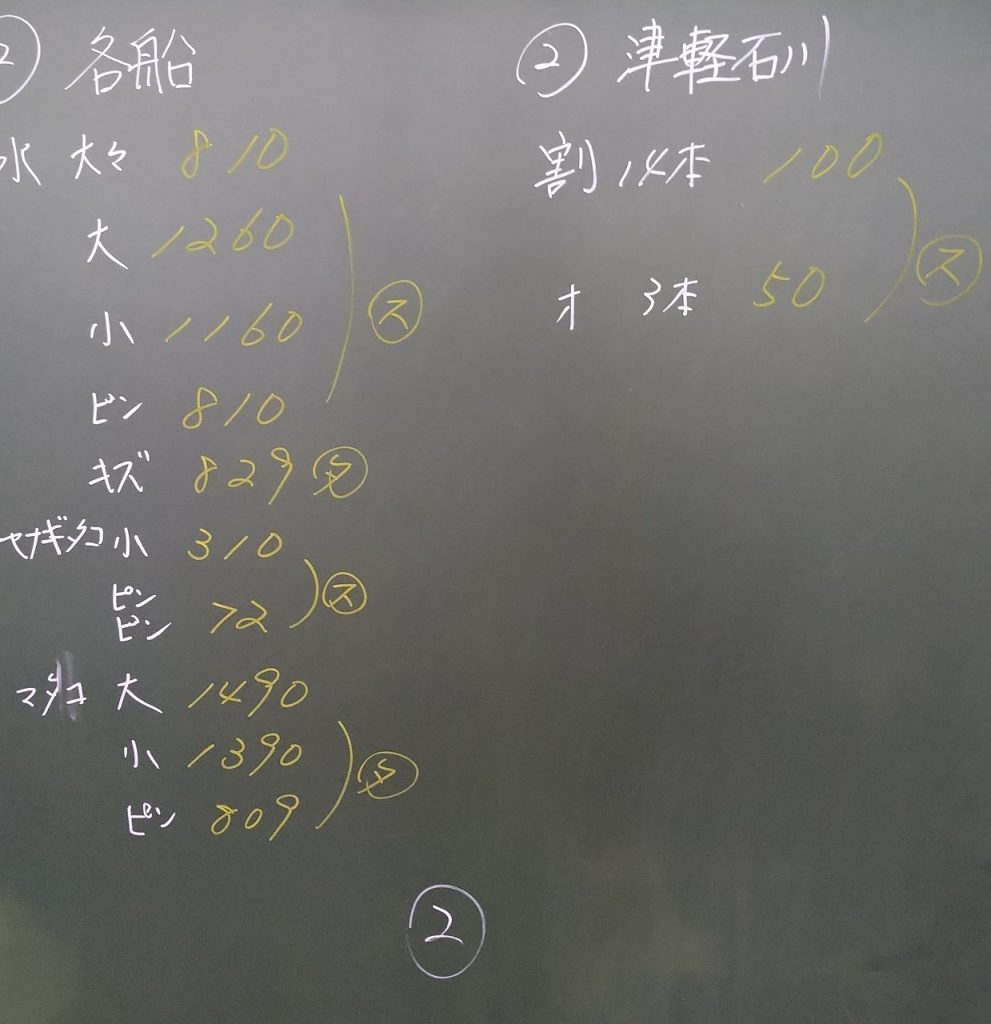 ② 各船
水 大々 810
大 1260
小 1160
ス
ピン 810
キズ 829 タ
ヤナギダコ 小 310
ピンピン 72
ス
マダコ 大 1490
小 1390
タ
ピン 809
② 津軽石川
割 14本 100
ス
オ 3本 50
②